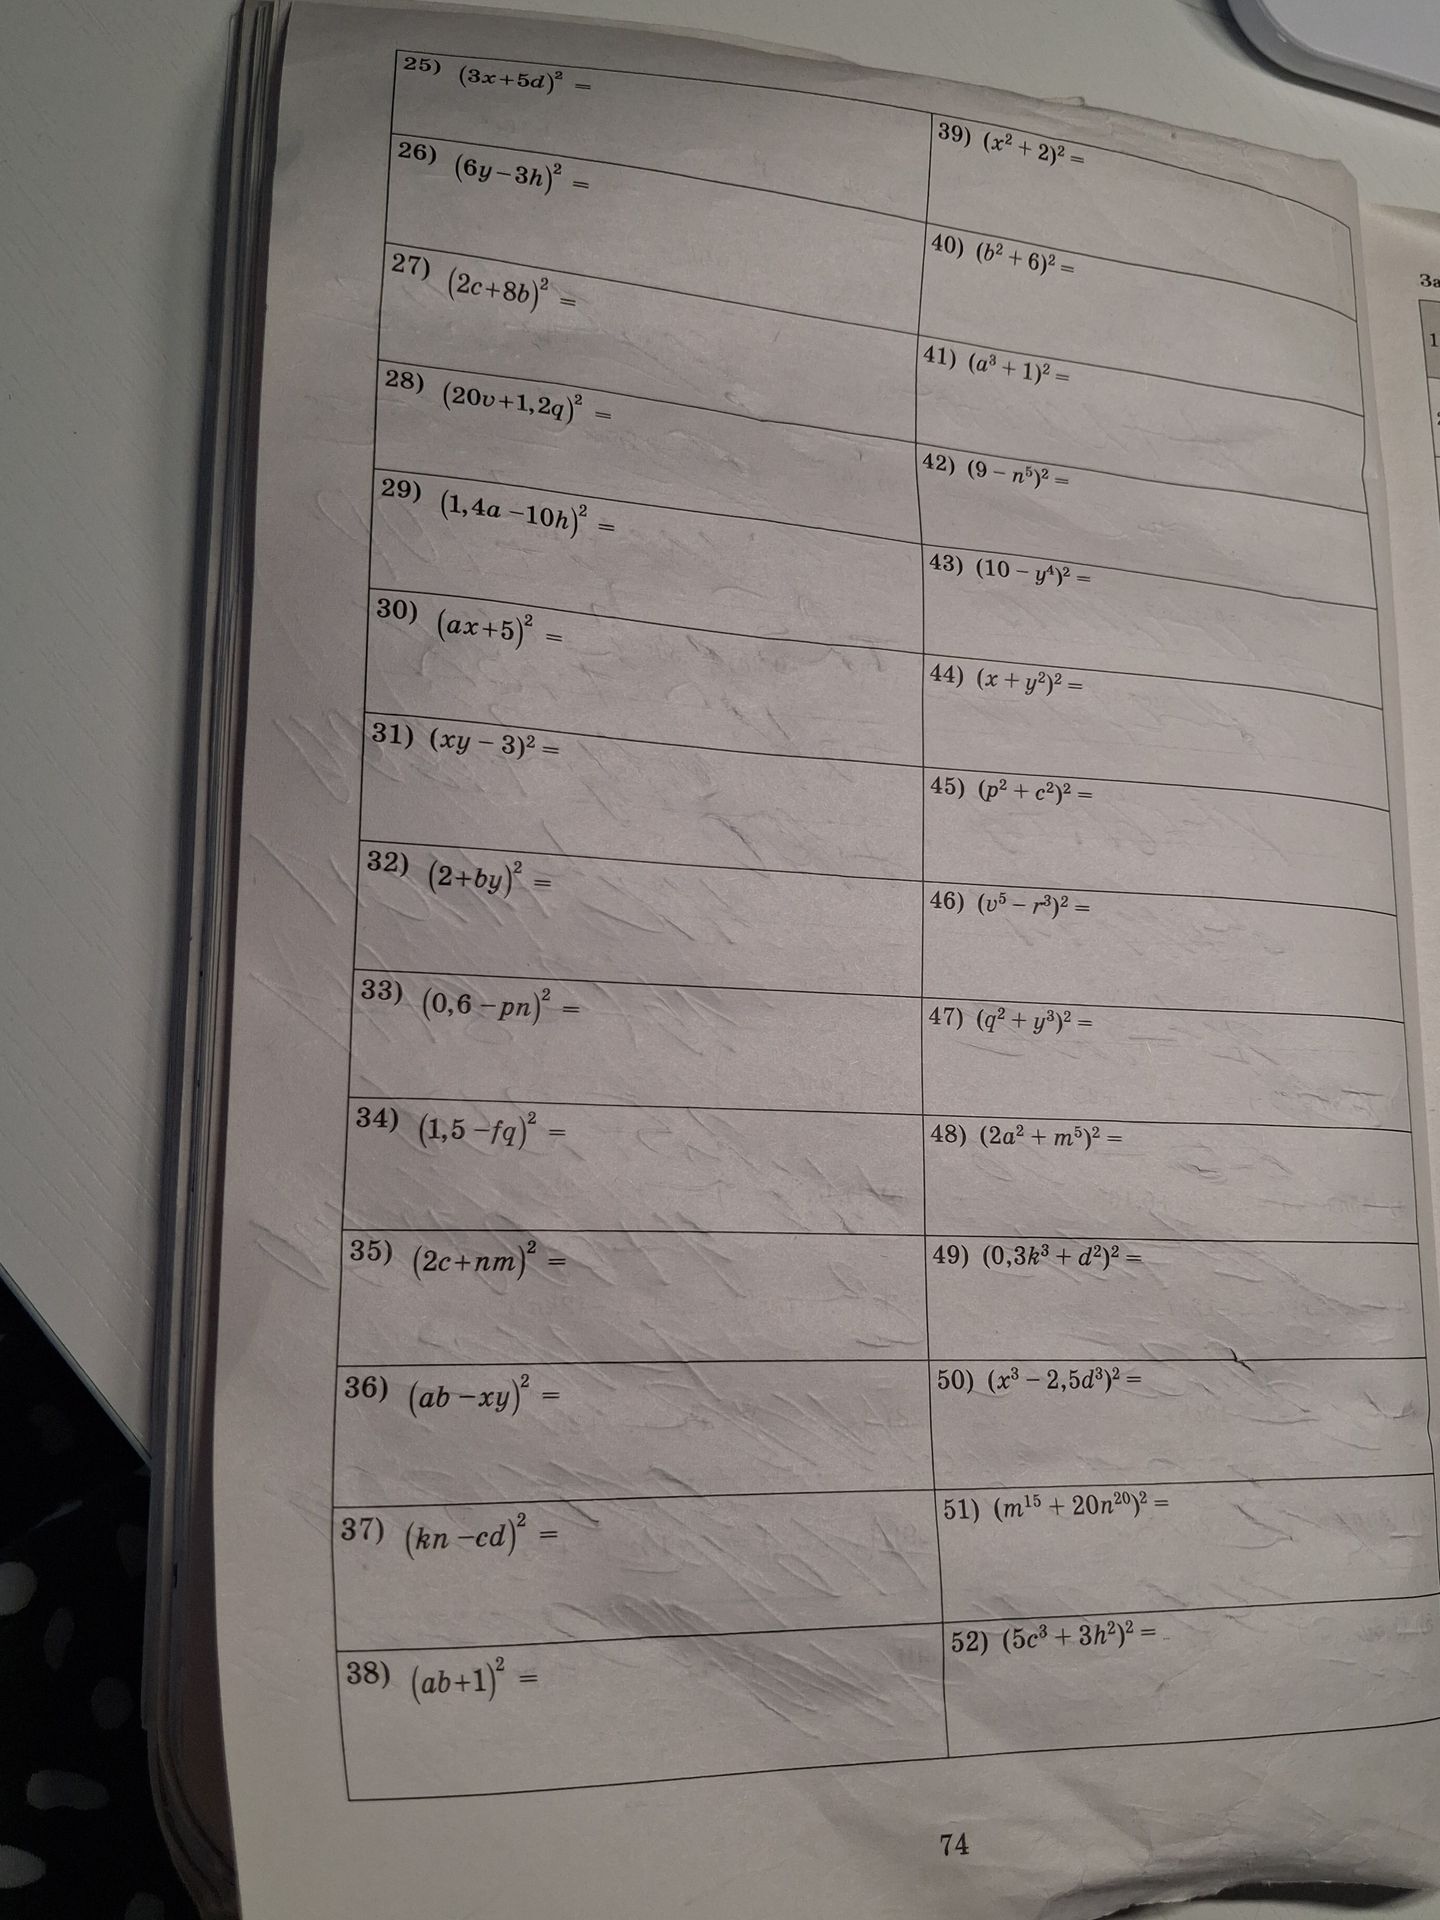 25) (3x+5d)² =
26) (6y−3h)² =
27) (2c+8b)² =
28) (20v+1,2q)² =
29) (1,4a −10h)² =
30) (ax+5)² =
31) (xy − 3)² =
32) (2+by)² =
33) (0,6 −pn)² =
34) (1,5 −fq)² =
35) (2c+nm)² =
36) (ab −xy)² =
37) (kn −cd)² =
38) (ab+1)² =
39) (x² + 2)² =
40) (b² + 6)² =
41) (a³ + 1)² =
42) (9 − n⁵)² =
43) (10 − y⁴)² =
44) (x + y²)² =
45) (p² + c²)² =
46) (v⁵ − r³)² =
47) (q² + y³)² =
48) (2a² + m⁵)² =
49) (0,3k³ + d²)² =
50) (x³ − 2,5d³)² =
51) (m¹⁵ + 20n²⁰)² =
52) (5c³ + 3h²)² =
74